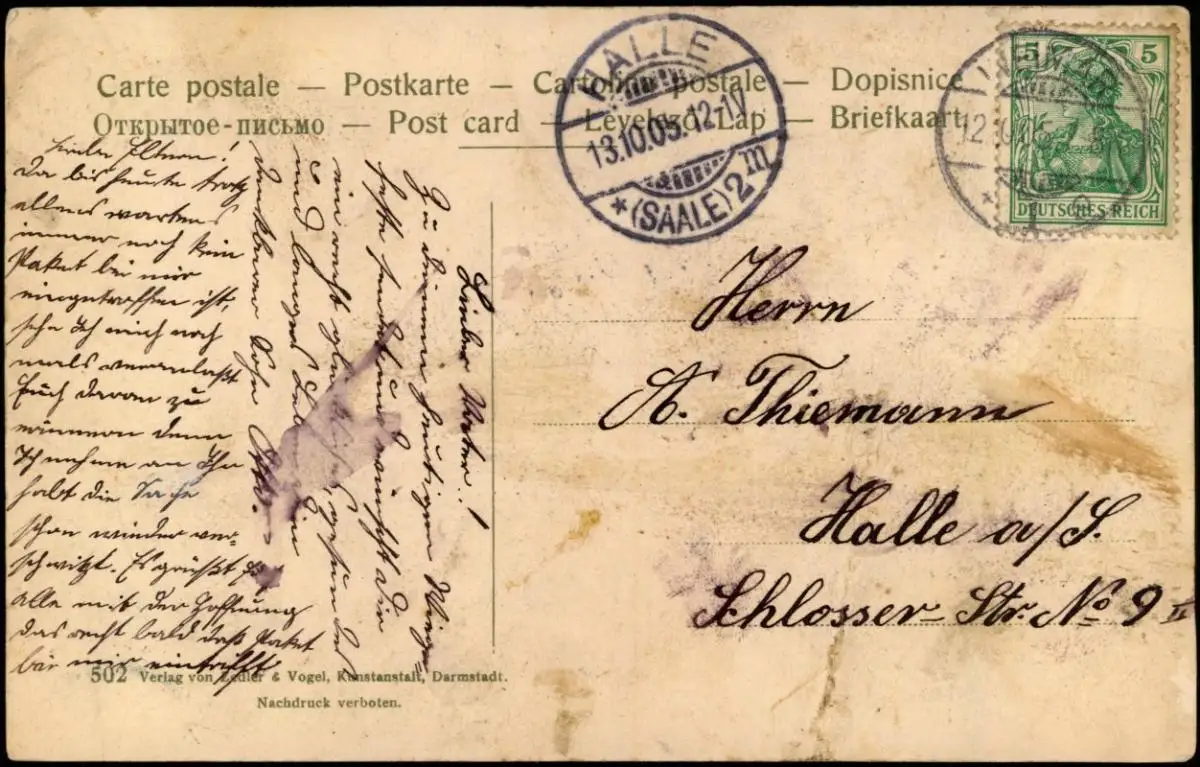 Carte postale — Postkarte — Cartolina postale — Dopisnice
Открытое-письмо — Post card — Levelező Lap — Briefkaart
HALLE
13.10.05. 12-1V
* (SAALE) 2 m
5 5
DEUTSCHES REICH
Herrn
A. Thiemann
Halle a/S.
Schlosser-Str. No 9 II
Lieber Vater!
Zu deinem heutigen Wiegen=
feste sendet und wünscht dir
ein recht
und langes
dankbarer Sohn Otto.
Liebe Eltern!
Da bis heute trotz
allens warten
immer noch kein
Paket bei mir
eingetroffen ist,
sehe Ich mich noch
mals veranlaßt
Euch daran zu
erinnern denn
Ich nehme an Ihr
habt die Sache
schon wieder ver-
schwitzt. Es grüßt
alle mit der Hoffnung
das recht bald daß Paket
bei mir eintrifft
502 Verlag von Zedler & Vogel, Kunstanstalt, Darmstadt.
Nachdruck verboten.